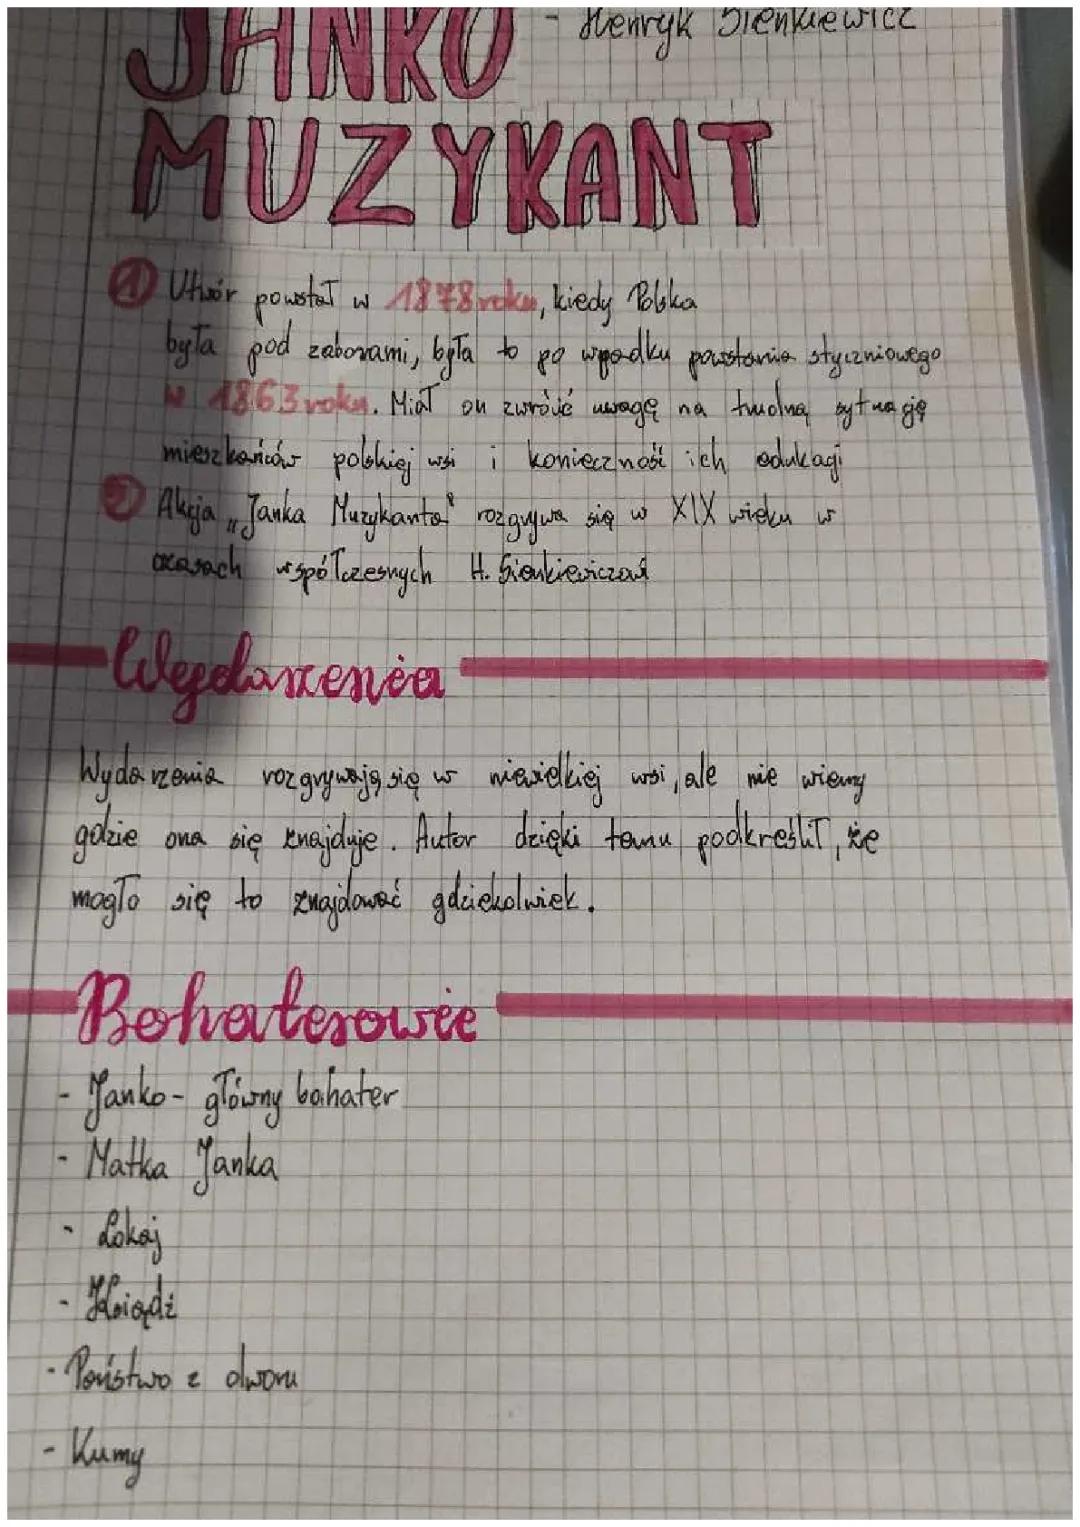 JANKO - Henryk Sienkiewicz
MUZYKANT
① Utwór powstał w 1878 roku, kiedy Polska
była pod zaborami, była to po upadku powstania styczniowego
w 1863 roku. Miał on zwrócić uwagę na trudną sytuację
mieszkańców polskiej wsi i konieczność ich edukacji
② Akcja „Janka Muzykanta" rozgrywa się w XIX wieku w
czasach współczesnych H. Sienkiewiczowi
Wydarzenia
Wydarzenia rozgrywają się w niewielkiej wsi, ale nie wiemy
gdzie ona się znajduje. Autor dzięki temu podkreślił, że
mogło się to znajdować gdziekolwiek.
Bohaterowie
- Janko - główny bohater
- Matka Janka
- Lokaj
- Ksiądz
- Państwo z dworu
- Kumy